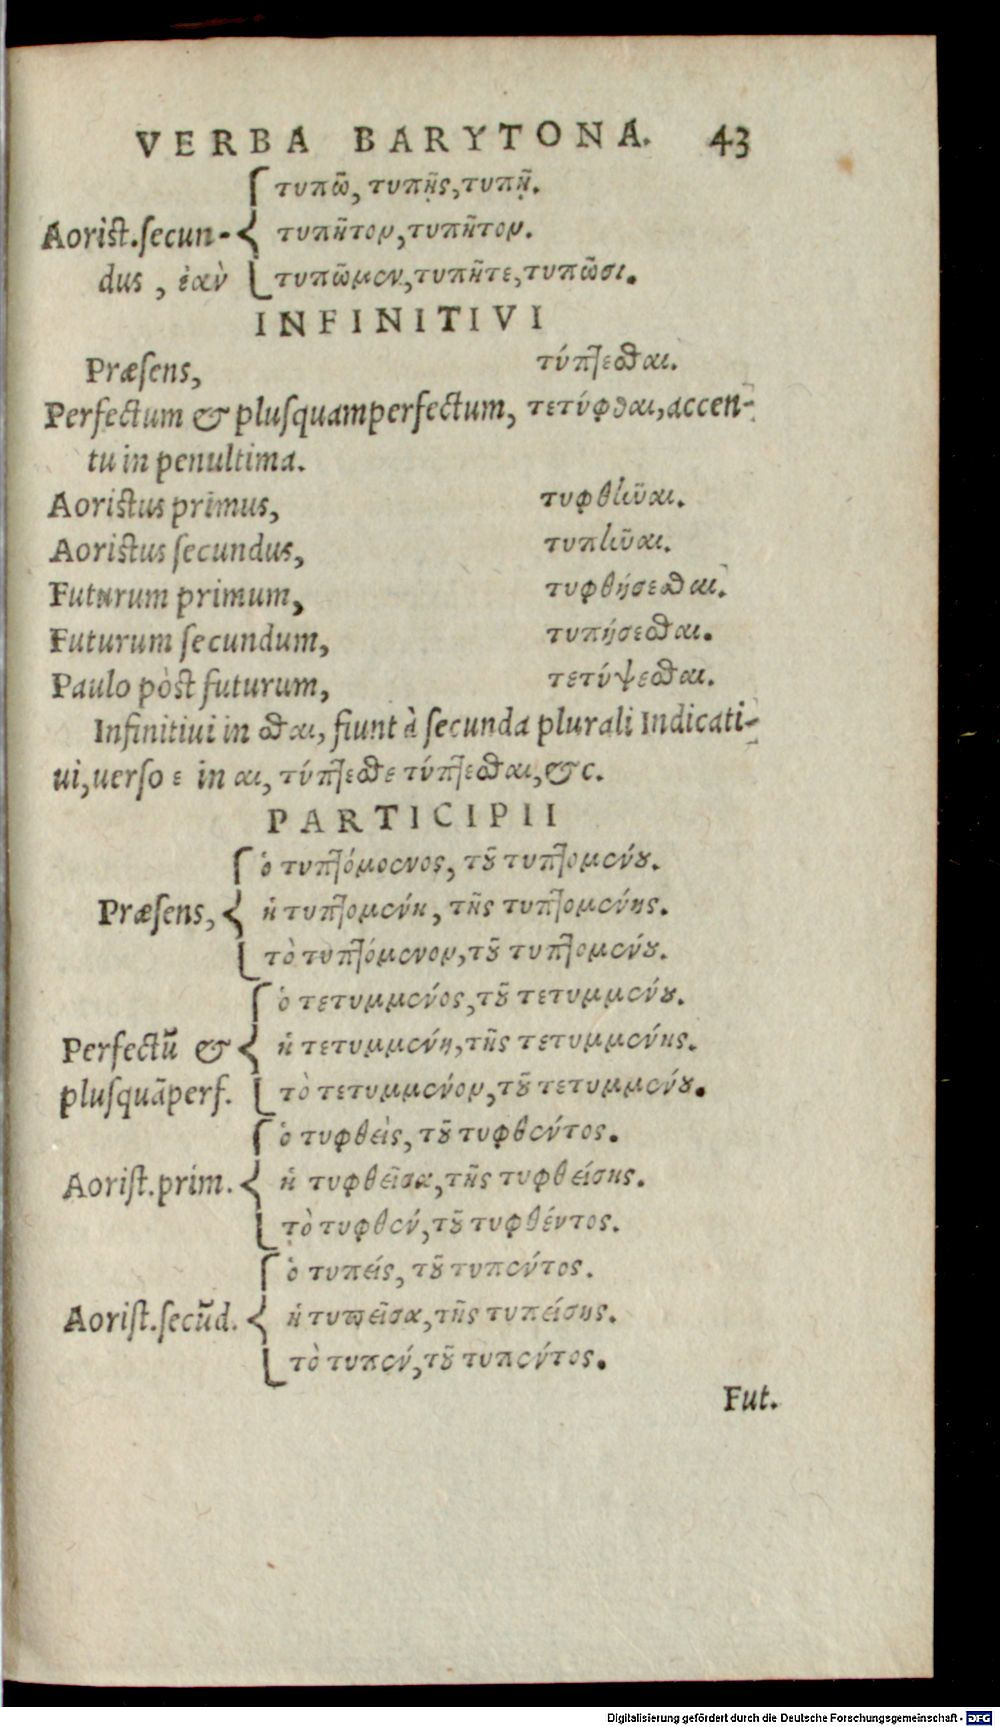 VERBA BARYTONA. 43
τυπῶ, τυπῇς, τυπῇ.
Aorist. secun- τυπῆτον, τυπῆτον.
dus, ἐὰν τυπῶμεν, τυπῆτε, τυπῶσι.
INFINITIVI
Præsens, τύπτεσθαι.
Perfectum & plusquamperfectum, τετύφθαι, accen-
tu in penultima.
Aoristus primus, τυφθῆναι.
Aoristus secundus, τυπῆναι.
Futurum primum, τυφθήσεσθαι.
Futurum secundum, τυπήσεσθαι.
Paulo pòst futurum, τετύψεσθαι.
Infinitiui in σθαι, fiunt à secunda plurali Indicati-
ui, uerso ε in αι, τύπτεσθε τύπτεσθαι, &c.
PARTICIPII
ὁ τυπτόμοενος, τȣ͂ τυπτομένȣ.
Præsens, ἡ τυπτομένη, τῆς τυπτομένης.
τὸ τυπτόμενον, τȣ͂ τυπτομένȣ.
ὁ τετυμμένος, τȣ͂ τετυμμένȣ.
Perfectū & ἡ τετυμμένη, τῆς τετυμμένης.
plusquāperf. τὸ τετυμμένον, τȣ͂ τετυμμένȣ.
ὁ τυφθεὶς, τȣ͂ τυφθέντος.
Aorist. prim. ἡ τυφθεῖσα, τῆς τυφθείσης.
τὸ τυφθέν, τȣ͂ τυφθέντος.
ὁ τυπείς, τȣ͂ τυπέντος.
Aorist. secūd. ἡ τυϖεῖσα, τῆς τυπείσης.
τὸ τυπέν, τȣ͂ τυπέντος.
Fut.
Digitalisierung gefördert durch die Deutsche Forschungsgemeinschaft - DFG